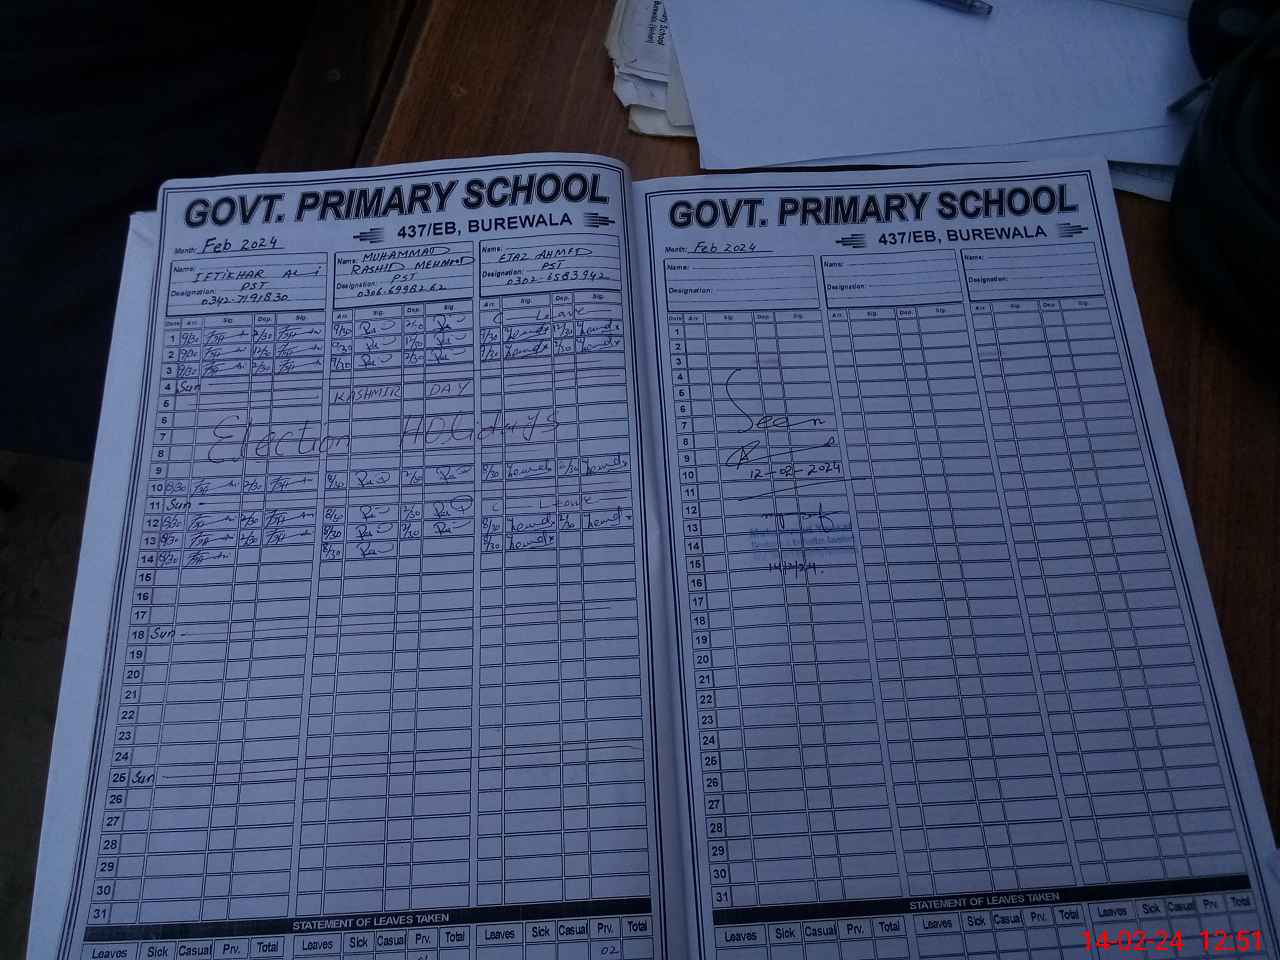 GOVT. PRIMARY SCHOOL
437/EB, BUREWALA
Month: Feb 2024
Name: IFTIKHAR ALI
Designation: PST
0342-7191830
Name: MUHAMMAD RASHID MEHMOOD
Designation: PST
0306-6998262
Name: EJAZ AHMED
Designation: PST
0302-6583942
Date Arr. Sig. Dep. Sig. Arr. Sig. Dep. Sig. Arr. Sig. Dep. Sig.
1 9/30 2/30 9/30 2/30 C Leave
2 9/30 12/30 9/30 9/30 12/30
3 9/30 2/30 9/30 2/30 9/30 2/30
4 Sun
5 KASHMIR DAY
6
7 Election Holidays
8
9
10 8/30 2/30 8/30 2/30 8/30 2/30
11 Sun
12 8/30 2/30 8/30 2/30 C Leave
13 8/30 2/30 8/30 2/30 8/30 2/30
14 8/30 8/30 8/30
15
16
17
18 Sun
19
20
21
22
23
24
25 Sun
26
27
28
29
30
31
STATEMENT OF LEAVES TAKEN
Leaves Sick Casual Prv. Total Leaves Sick Casual Prv. Total Leaves Sick Casual Prv. Total
02
GOVT. PRIMARY SCHOOL
437/EB, BUREWALA
Month: Feb 2024
Name:
Designation:
Name:
Designation:
Name:
Designation:
Date Arr. Sig. Dep. Sig. Arr. Sig. Dep. Sig. Arr. Sig. Dep. Sig.
1
2
3
4
5
6
7 Seen
8
9
10 12-02-2024
11
12
13
14
15 14/2/24.
16
17
18
19
20
21
22
23
24
25
26
27
28
29
30
31
STATEMENT OF LEAVES TAKEN
Leaves Sick Casual Prv. Total Leaves Sick Casual Prv. Total Leaves Sick Casual Prv. Total
14-02-24 12:51